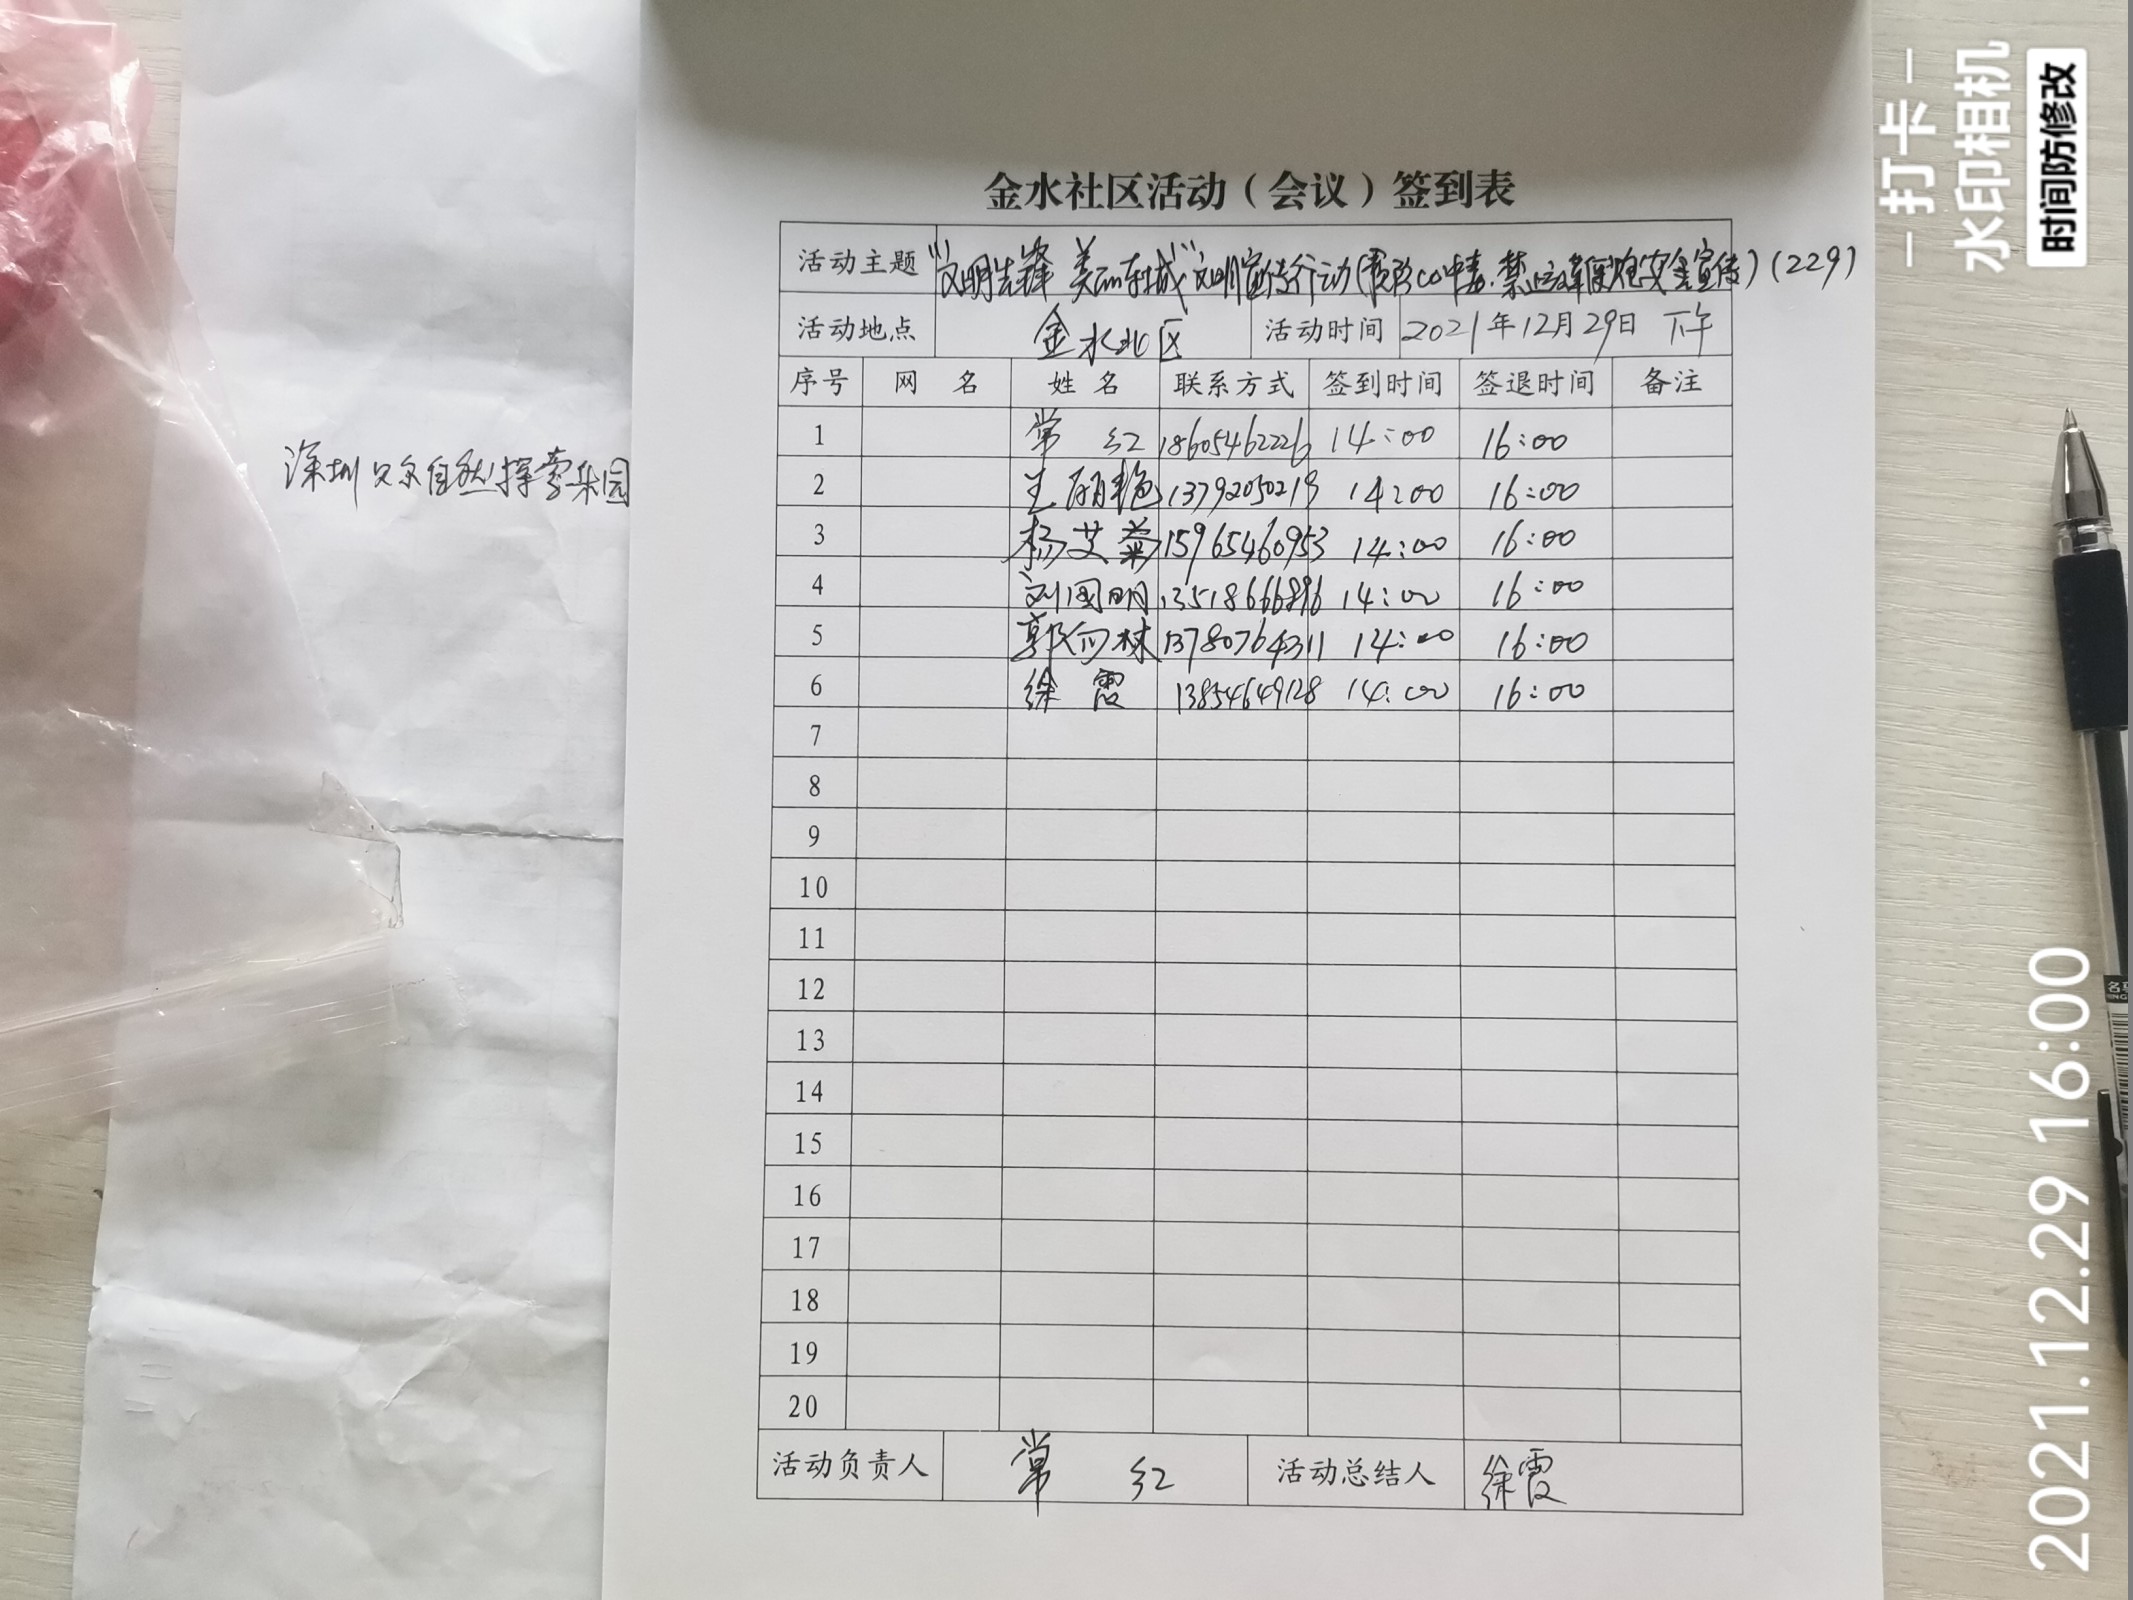 金水社区活动（会议）签到表
活动主题 "文明先锋 美丽东城"文明宣传行动(预防CO中毒.禁止燃鞭炮安全宣传)(229)
活动地点 金水北区 活动时间 2021年12月29日 下午
序号 网 名 姓 名 联系方式 签到时间 签退时间 备注
1 常 红 18605462226 14:00 16:00
2 王丽艳 13792050219 14:00 16:00
3 杨艾菊 15965460953 14:00 16:00
4 刘国明 13518666896 14:00 16:00
5 郭向林 13780764311 14:00 16:00
6 徐 霞 13854649128 14:00 16:00
7
8
9
10
11
12
13
14
15
16
17
18
19
20
活动负责人 常 红 活动总结人 徐霞
深圳贝尔自然探索乐园
打卡
水印相机
时间防修改
2021.12.29 16:00